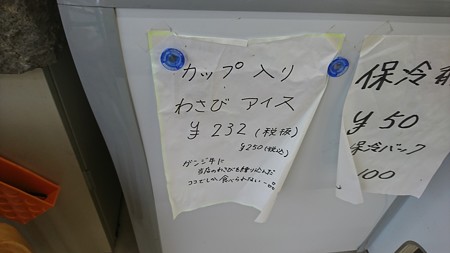 カップ入り
わさびアイス
¥232(税抜)
¥250(税込)
ゲンジ牛に
当店のわさびを練り込んだ
ココでしか食べられない
保冷剤
¥50
保冷パック
100